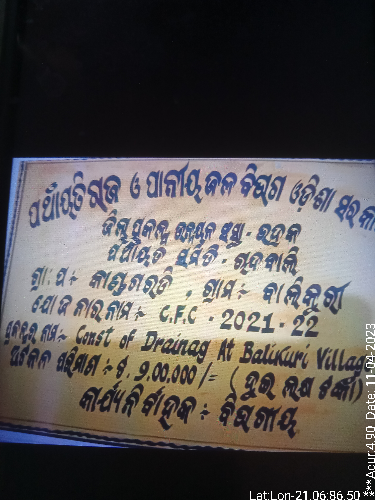 ପଞ୍ଚାୟତିରାଜ ଓ ପାନୀୟ ଜଳ ବିଭାଗ ଓଡ଼ିଶା ସରକା
ଜିଲ୍ଲା ଉନ୍ନୟନ ସଂସ୍ଥା - ଭଦ୍ରକ
ପଞ୍ଚାୟତ ସମିତି - ଚାନ୍ଦବାଲି
ଗ୍ରା: ପ:- , ଗ୍ରାମ:- ବାଲିକୁରୀ
ଯୋଜନାର ନାମ:- C.F.C - 2021-22
ପ୍ରକଳ୍ପର ନାମ:- Const of Drainag At Balikuri Villag
ଅଟକଳ ପରିମାଣ:- ଟ. ୨,00,000/= (ଦୁଇ ଲକ୍ଷ ଟଙ୍କା)
କାର୍ଯ୍ୟନିର୍ବାହକ:- ବିଭାଗୀୟ
Lat:Lon-21.06:86.50 ***Acur:4.90 Date: 11-04-2023 ***